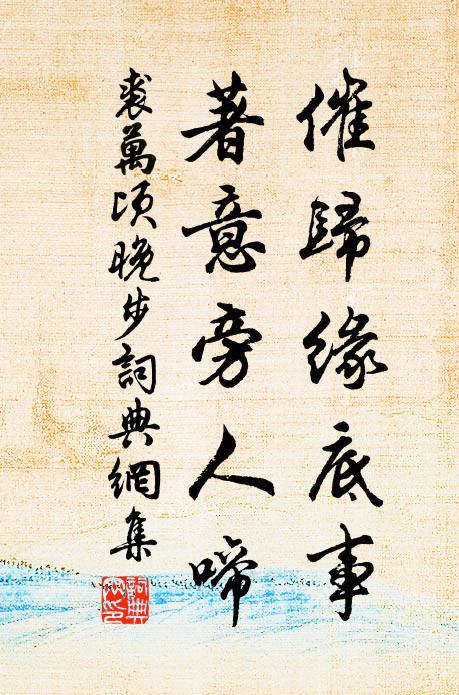 催歸緣底事
著意旁人啼
裘萬頃晚步詞典網集